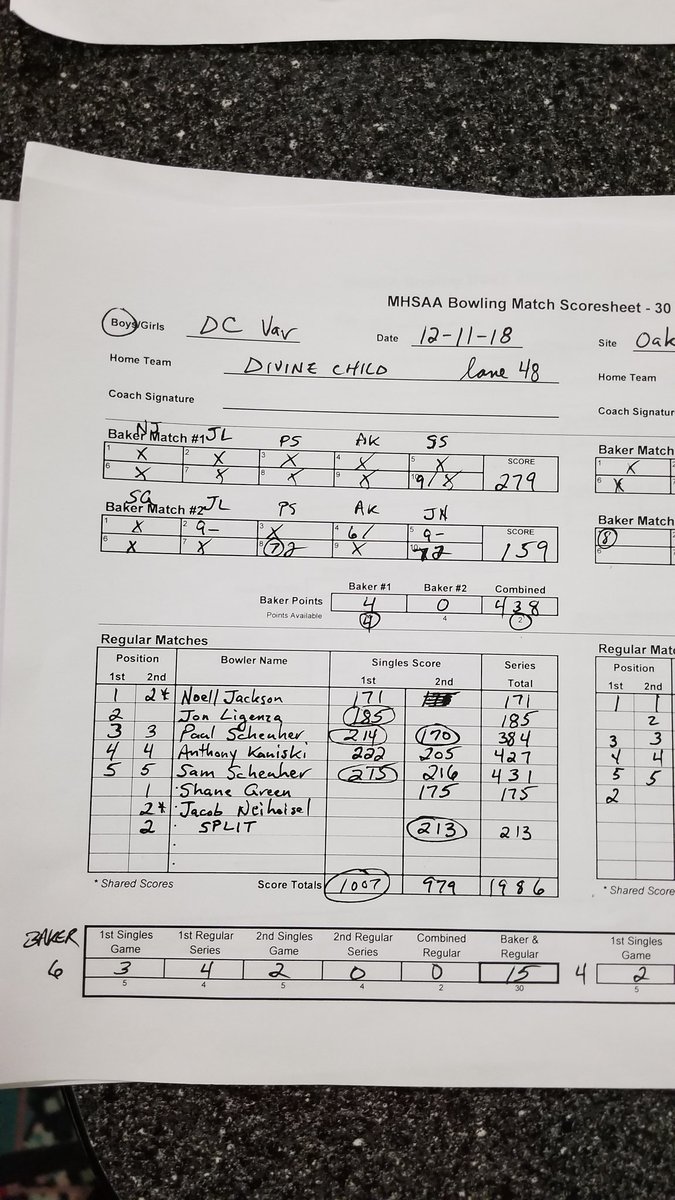 MHSAA Bowling Match Scoresheet - 30
Boys/Girls DC Var Date 12-11-18 Site Oak
Home Team DIVINE CHILD lane 48 Home Team
Coach Signature Coach Signatur
NJ JL PS AK SS
Baker Match #1 Baker Match
1 X 2 X 3 X 4 X 5 X SCORE 1 X
6 X 7 X 8 X 9 X 10 9/X 279 6 X
SG JL PS AK JN
Baker Match #2 Baker Match
1 X 2 9- 3 X 4 6/ 5 9- SCORE 8
6 X 7 X 8 72 9 X 10 72 159 6
Baker #1 Baker #2 Combined
Baker Points 4 0 438
Points Available 4 4 2
Regular Matches Regular Matc
Position Bowler Name Singles Score Series Position
1st 2nd 1st 2nd Total 1st 2nd
1 2* Noell Jackson 171 171 1 1
2 Jon Ligenza 185 185 2
3 3 Paul Scheuher 214 170 384 3 3
4 4 Anthony Kaniski 222 205 427 4 4
5 5 Sam Scheuher 215 216 431 5 5
1 Shane Green 175 175 2
2* Jacob Neihoisel
2 SPLIT 213 213
* Shared Scores Score Totals 1007 979 1986 * Shared Score
BAKER 1st Singles Game 1st Regular Series 2nd Singles Game 2nd Regular Series Combined Regular Baker & Regular 1st Singles Game
6 3 4 2 0 0 15 4 2
5 4 5 4 2 30 5